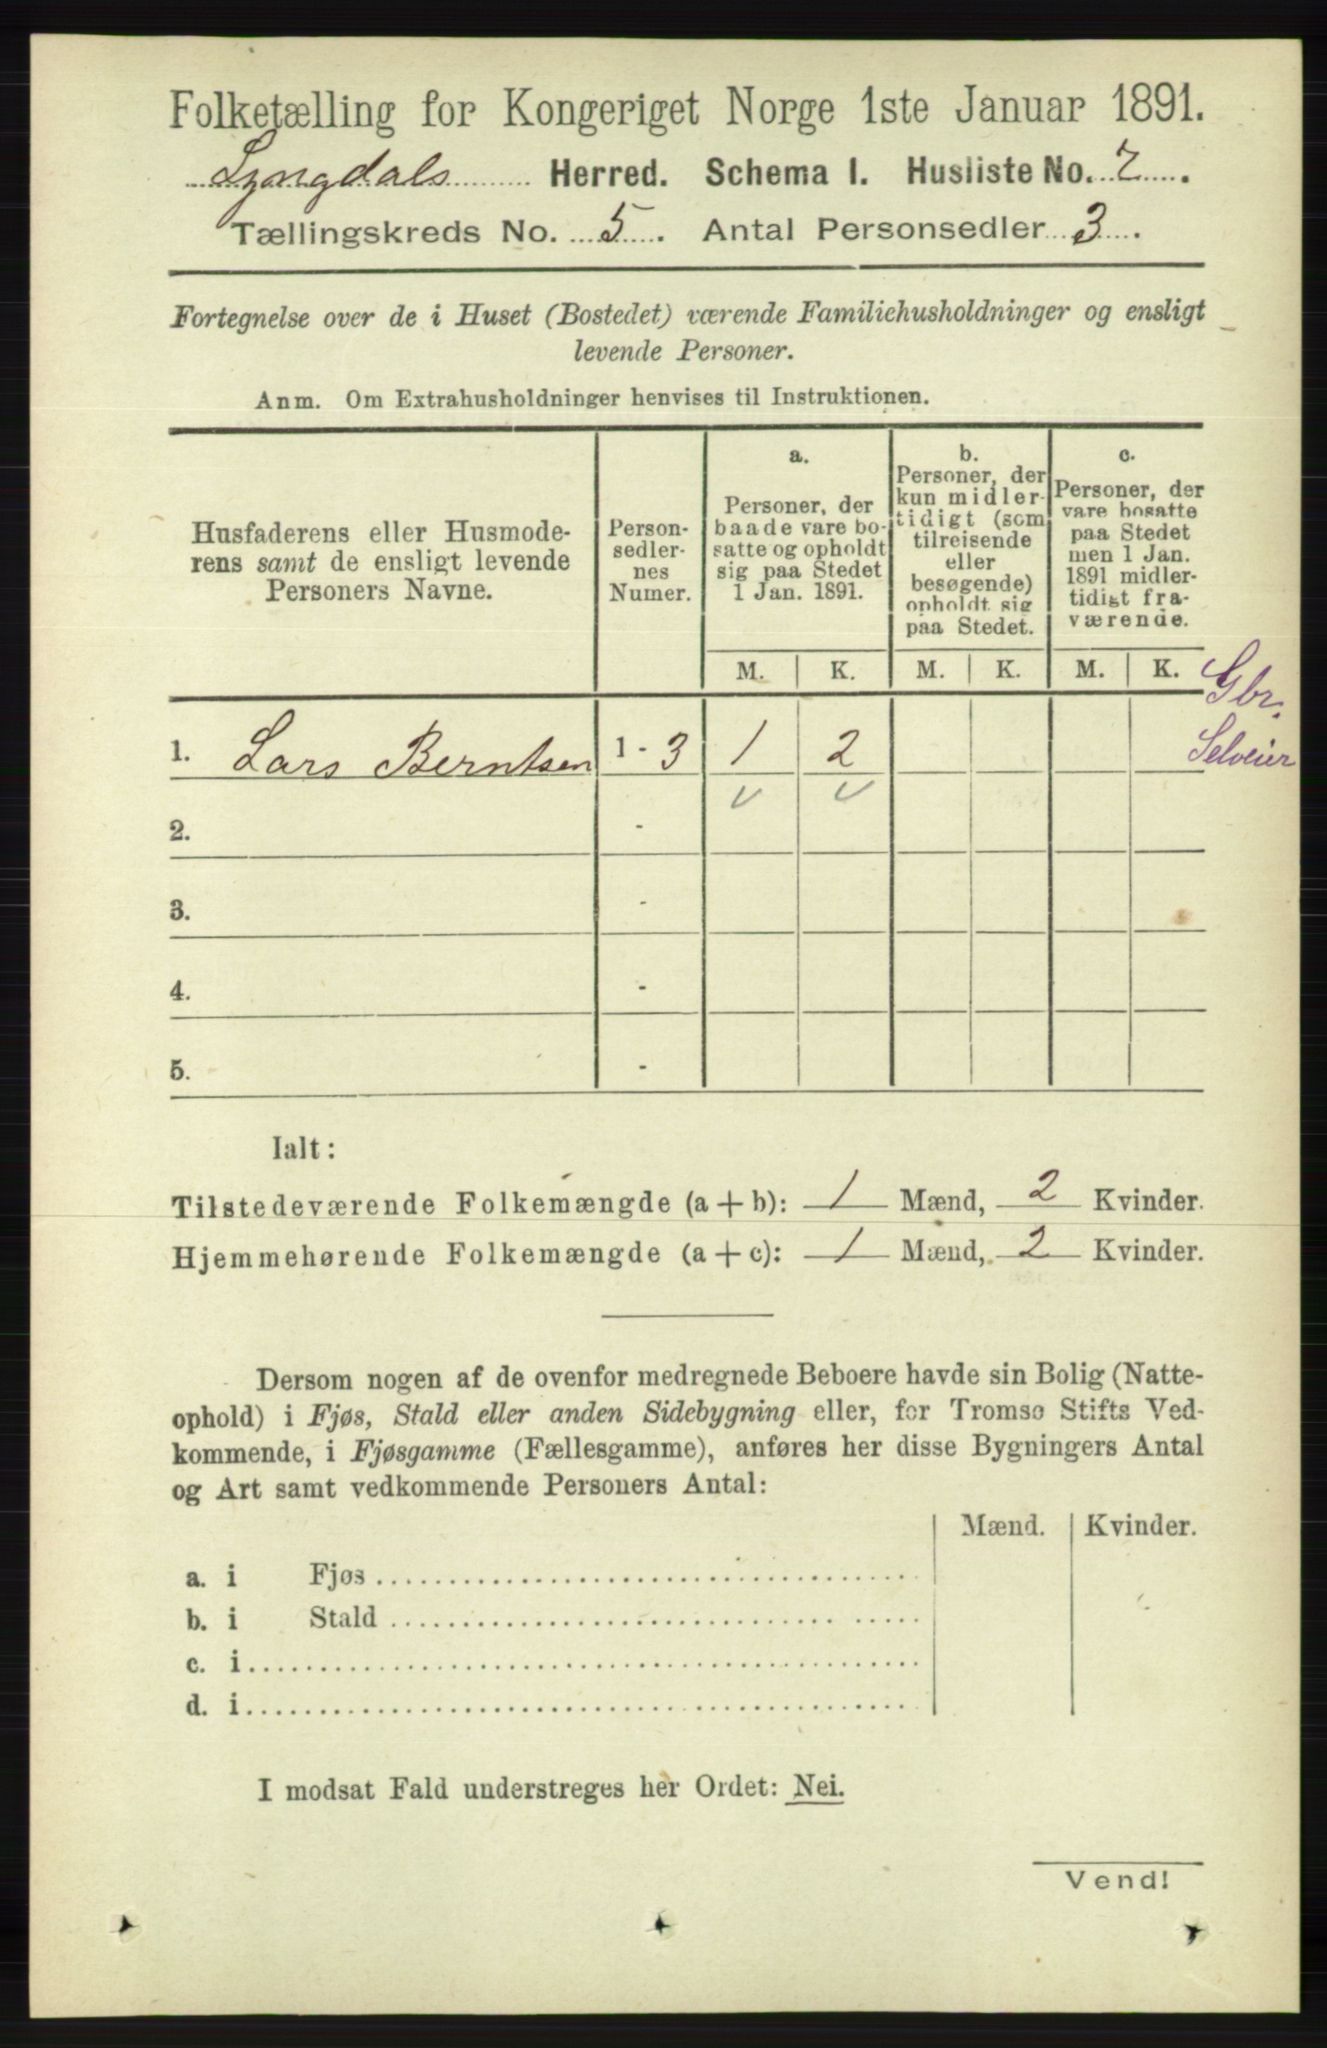 Folketælling for Kongeriget Norge 1ste Januar 1891.
Lyngdals Herred. Schema I. Husliste No. 7.
Tællingskreds No. 5. Antal Personsedler 3.
Fortegnelse over de i Huset (Bostedet) værende Familiehusholdninger og ensligt
levende Personer.
Anm. Om Extrahusholdninger henvises til Instruktionen.
Husfaderens eller Husmode-
rens samt de ensligt levende
Personers Navne.
Person-
sedler-
nes
Numer.
a.
Personer, der
baade vare bo-
satte og opholdt
sig paa Stedet
1 Jan. 1891.
b.
Personer, der
kun midler-
tidigt (som
tilreisende
eller
besøgende)
opholdt sig
paa Stedet.
c.
Personer, der
vare bosatte
paa Stedet
men 1 Jan.
1891 midler-
tidigt fra-
værende.
M. K. M. K. M. K.
Gbr.
Selveier
1. Lars Berntsen 1 - 3 1 2
2. -
3. -
4. -
5. -
Ialt:
Tilstedeværende Folkemængde (a + b): 1 Mænd, 2 Kvinder.
Hjemmehørende Folkemængde (a + c): 1 Mænd, 2 Kvinder.
Dersom nogen af de ovenfor medregnede Beboere havde sin Bolig (Natte-
ophold) i Fjøs, Stald eller anden Sidebygning eller, for Tromsø Stifts Ved-
kommende, i Fjøsgamme (Fællesgamme), anføres her disse Bygningers Antal
og Art samt vedkommende Personers Antal:
Mænd. Kvinder.
a. i Fjøs
b. i Stald
c. i
d. i
I modsat Fald understreges her Ordet: Nei.
Vend!